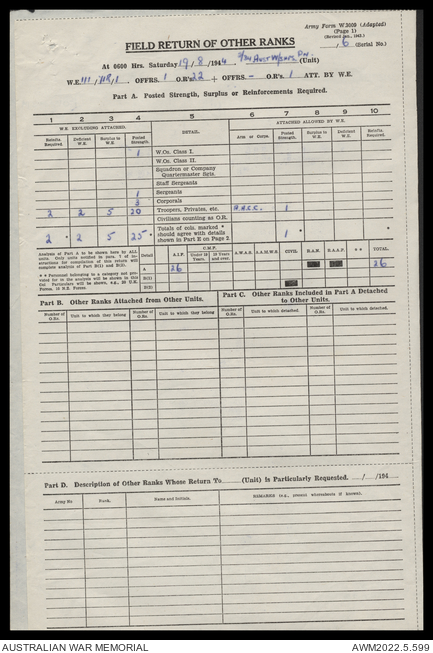 Army Form W.3009 (Adapted)
(Page 1)
FIELD RETURN OF OTHER RANKS
6 (Serial No.)
At 0600 Hrs. Saturday 19/8/1944 (Unit)
W.E. 111/ OFFRS. 1 O.R's 22 + OFFRS. - O.R's 1 ATT. BY W.E.
Part A. Posted Strength, Surplus or Reinforcements Required.
1 2 3 4 5 6 7 8 9 10
W.E. EXCLUDING ATTACHED. DETAIL. ATTACHED ALLOWED BY W.E.
Reinfts. Required. Deficient W.E. Surplus to W.E. Posted Strength. Arm or Corps. Posted Strength. Surplus to W.E. Deficient W.E. Reinfts. Required.
1 W.Os. Class I.
W.Os. Class II.
Squadron or Company Quartermaster Sgts.
Staff Sergeants
1 Sergeants
3 Corporals
2 2 5 20 Troopers, Privates, etc. A.A.S.C. 1
Civilians counting as O.R.
2 * 2 5 25 * Totals of cols. marked * should agree with details shown in Part E on Page 2. 1 *
Analysis of Part A to be shown here by ALL units. Detail A.I.F. C.M.F. Under 19 Years. 19 Years and over. A.W.A.S. A.A.M.W.S. CIVIL R.A.N. R.A.A.F. * * TOTAL
A 26 26
Part B. Other Ranks Attached from Other Units.
Part C. Other Ranks Included in Part A Detached to Other Units.
Number of O.Rs. Unit to which they belong Number of O.Rs. Unit to which they belong Number of O.Rs. Unit to which detached. Number of O.Rs. Unit to which detached.
Part D. Description of Other Ranks Whose Return To (Unit) is Particularly Requested. / /194
Army No. Rank. Name and Initials. REMARKS (e.g., present whereabouts if known).
AUSTRALIAN WAR MEMORIAL
AWM2022.5.599